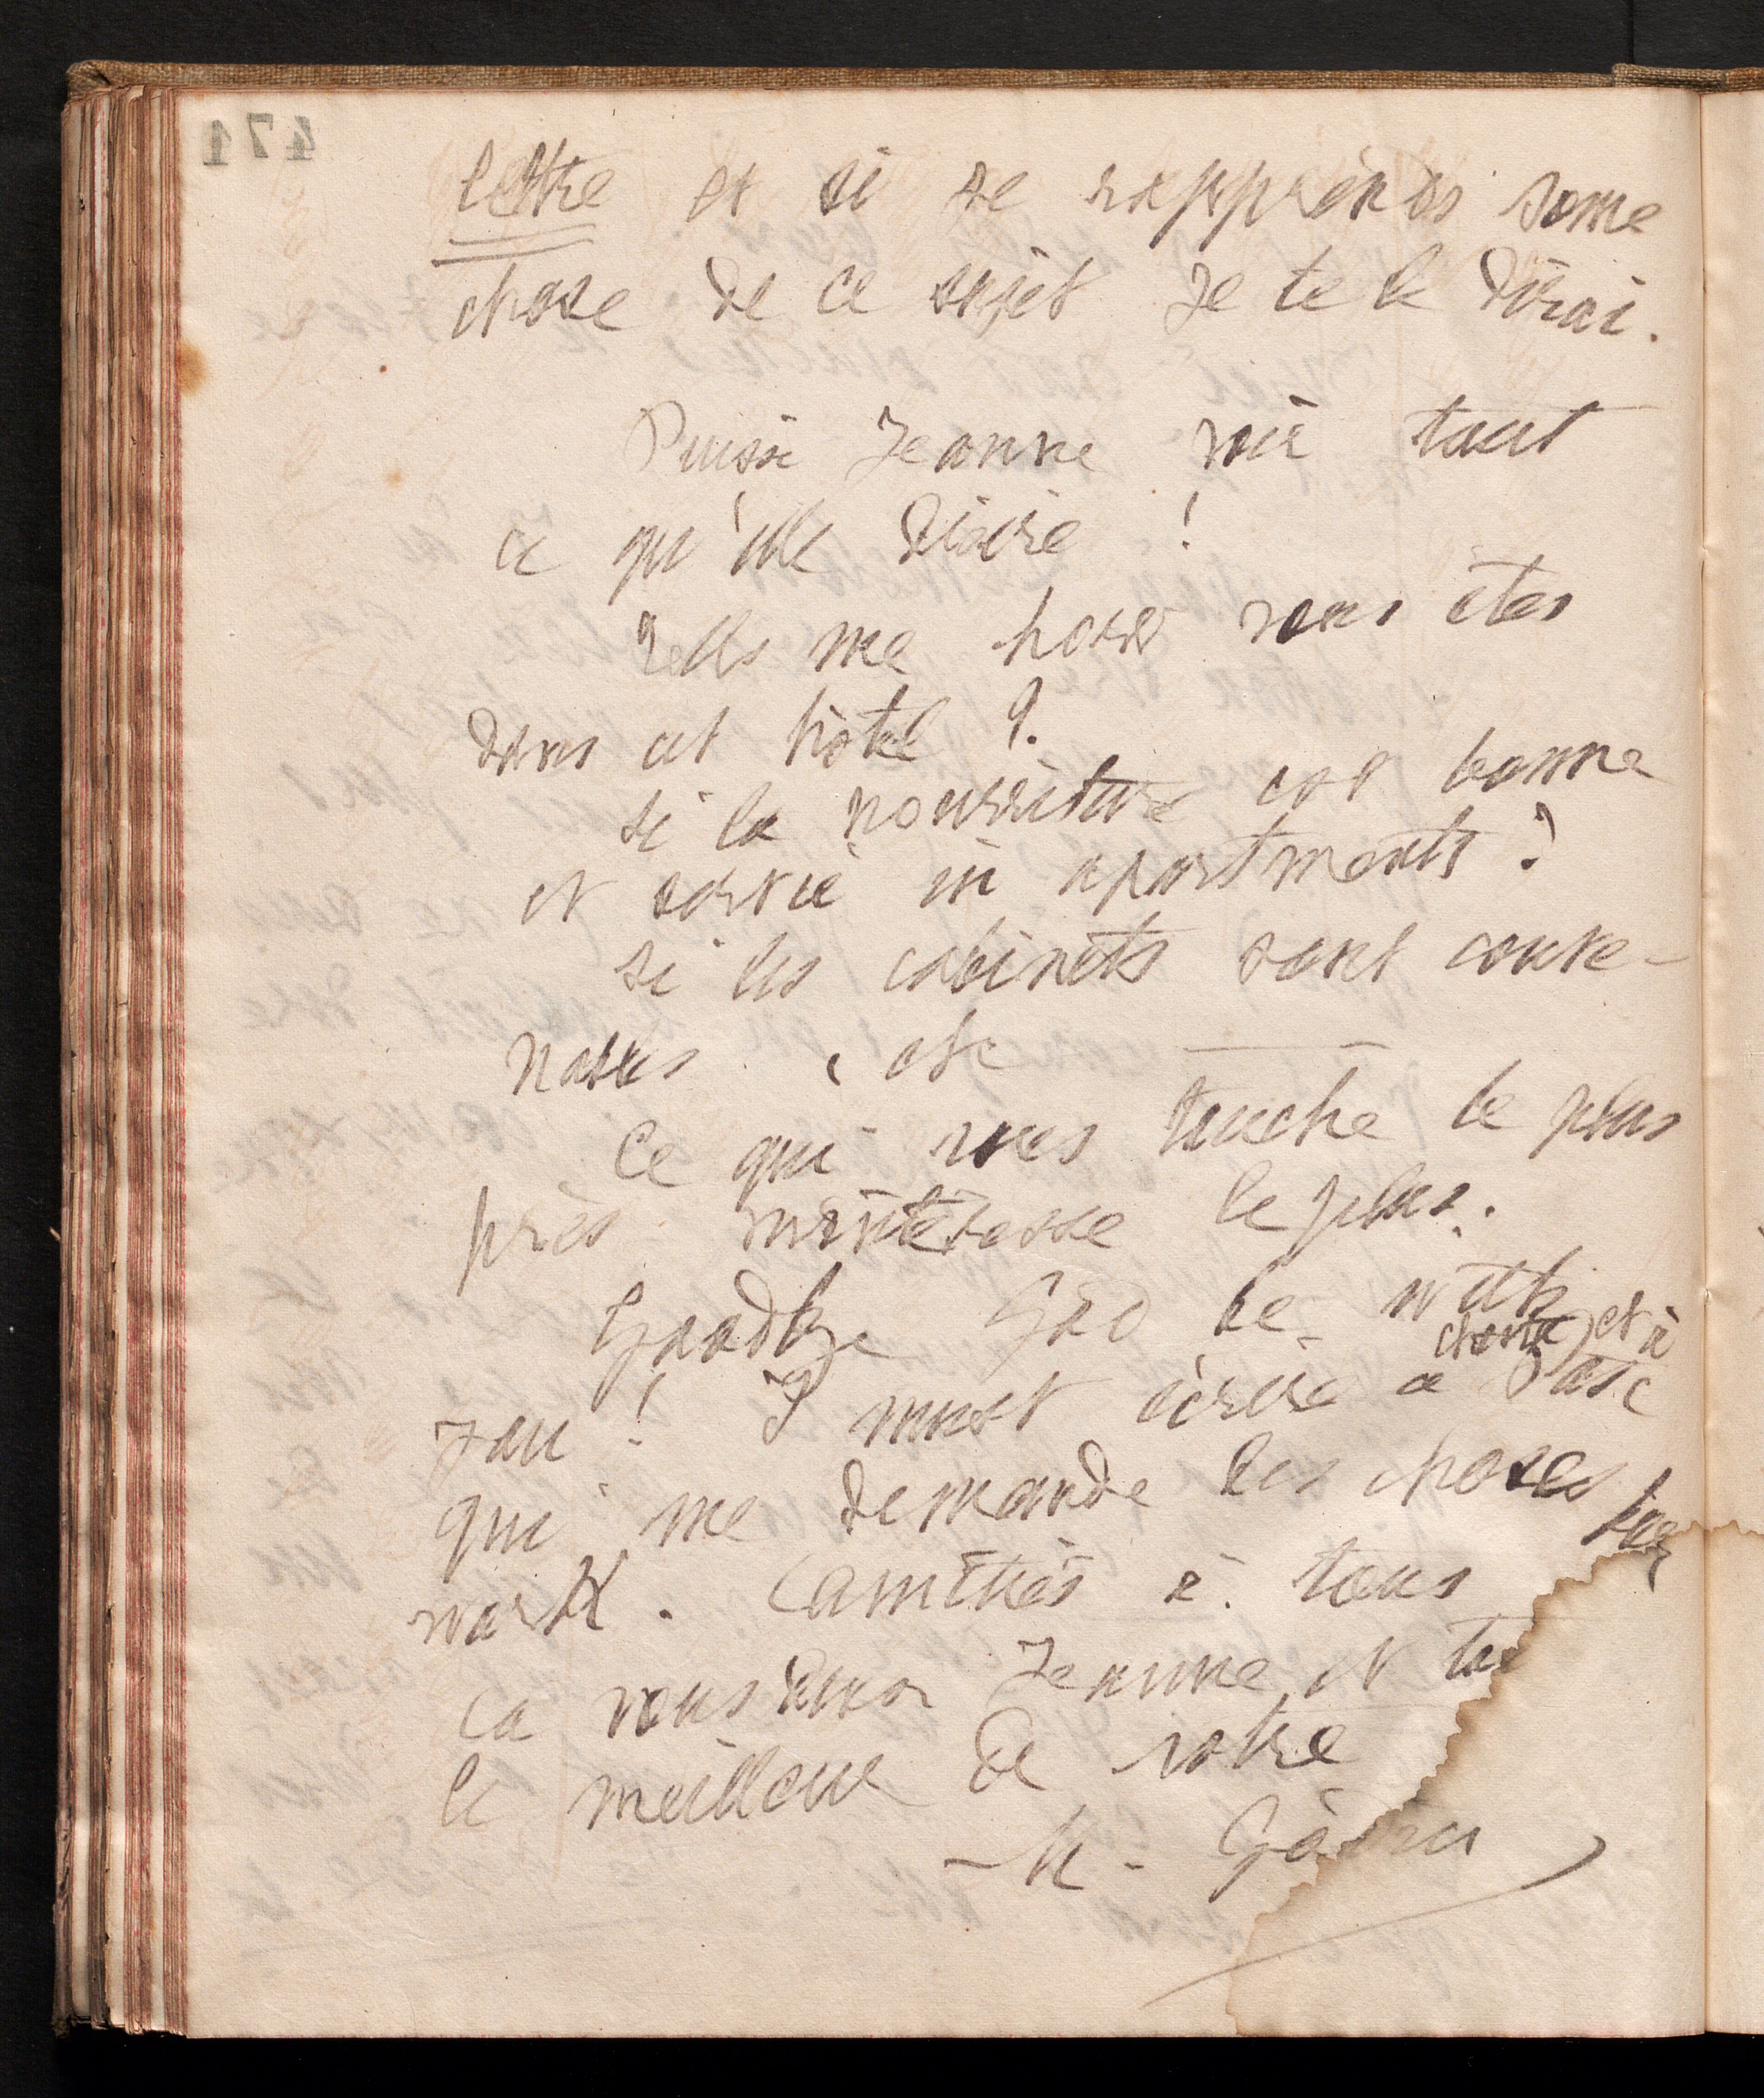 471
lettre et si je rapprends some
chose de ce sujet je te le dirai.
Puisse Jeanne voir tout
ce qu'elle désire !
Tells me how vous êtes
dans cet hôtel ?
si la nourriture est bonne
et servie in apartments ?
si les cabinets sont conve-
nables. , etc
Ce qui vous touche le plus
près m'intéresse le plus.
Goodbye God be with
et à
you ! I must écrire à
qui me demande les choses
work. amitiés à tous
Jeanne et
le meilleur de votre
M.